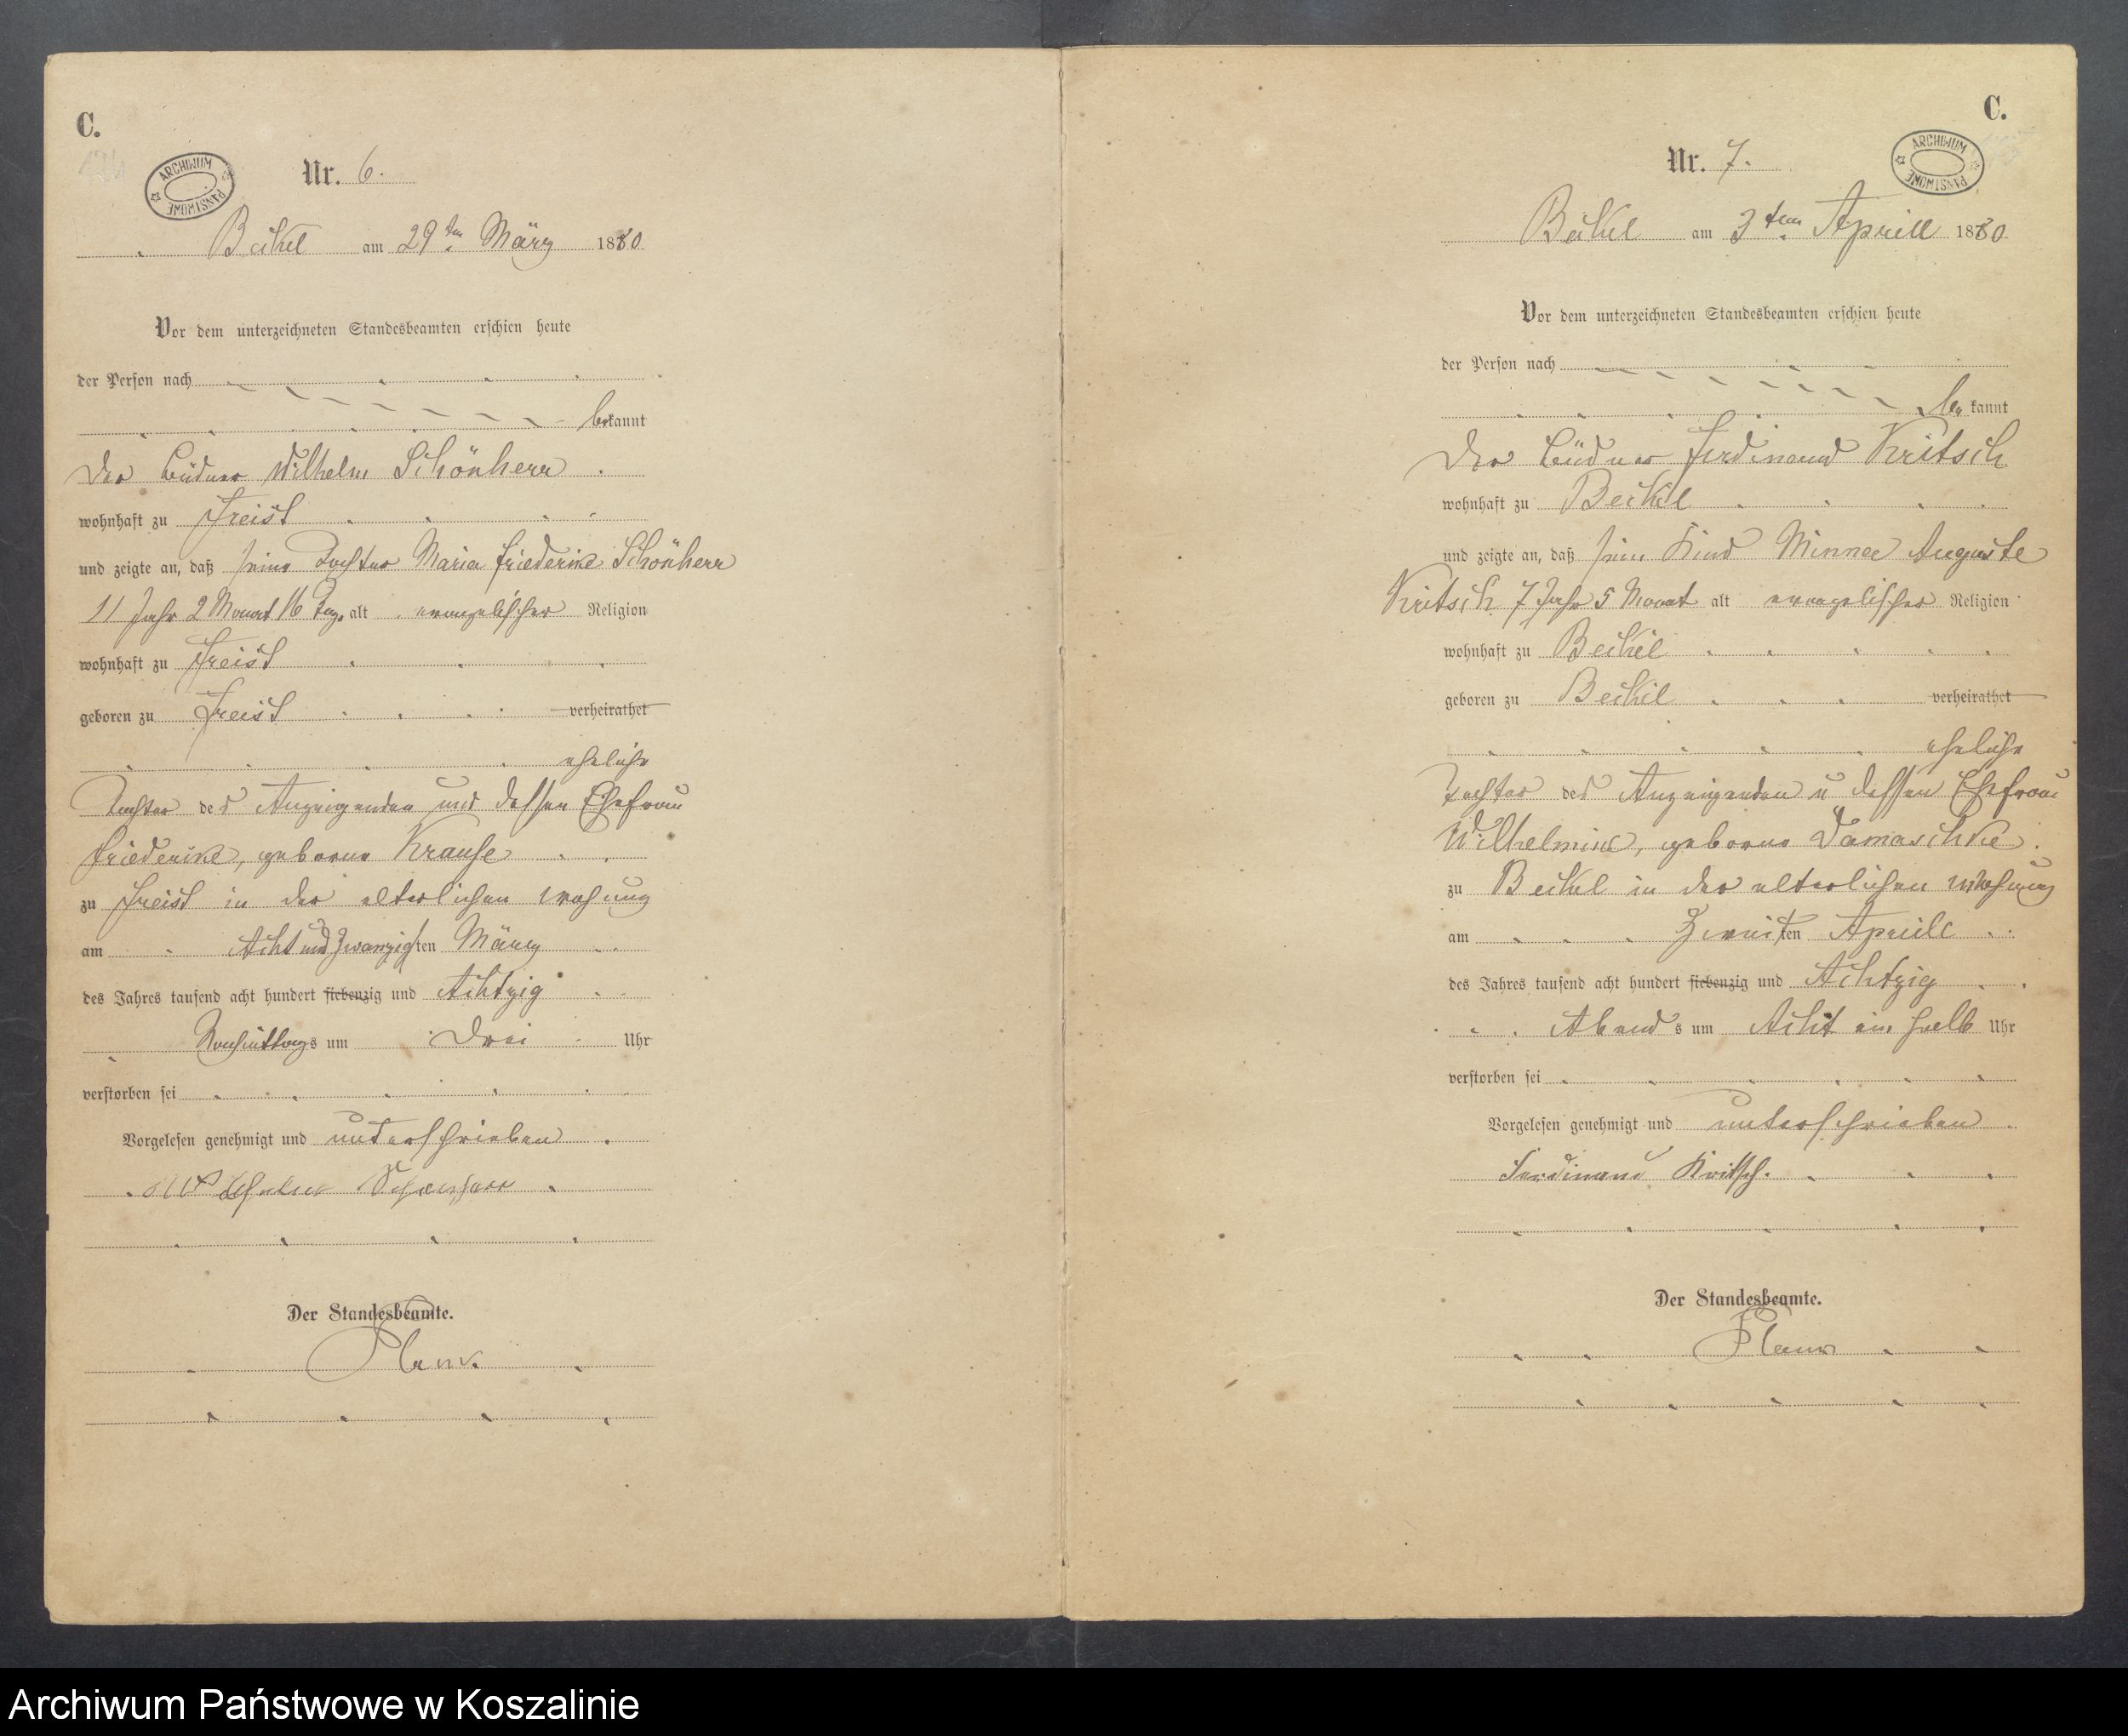 C.
ARCHIWUM PAŃSTWOWE
Nr. 6.
Beikel am 29ten März 1880
Vor dem unterzeichneten Standesbeamten erschien heute
der Person nach
bekannt
der Büdner Wilhelm Schönherr
wohnhaft zu Freist
und zeigte an, daß seine Tochter Maria Friederike Schönherr
11 Jahr 2 Monat 16 Tage alt evangelischer Religion
wohnhaft zu Freist
geboren zu Freist verheirathet
eheliche
Tochter des Anzeigenden und dessen Ehefrau
Friederike, geborne Krause
zu Freist in der elterlichen Wohnung
am Acht und Zwanzigsten März
des Jahres tausend acht hundert siebenzig und Achtzig
Nachmittags um Drei Uhr
verstorben sei
Vorgelesen genehmigt und unterschrieben
Schönherr
Der Standesbeamte.
C.
ARCHIWUM PAŃSTWOWE
Nr. 7.
Beikel am 3ten Aprill 1880
Vor dem unterzeichneten Standesbeamten erschien heute
der Person nach
bekannt
der Büdner Ferdinand Kritsch
wohnhaft zu Beikel
und zeigte an, daß sein Kind Minna Auguste
Kritsch 7 Jahr 5 Monat alt evangelischer Religion
wohnhaft zu Beikel
geboren zu Beikel verheirathet
eheliche
Tochter des Anzeigenden u dessen Ehefrau
Wilhelmine, geborne Damaschke
zu Beikel in der elterlichen Wohnung
am Zweiten Aprill
des Jahres tausend acht hundert siebenzig und Achtzig
Abends um Acht ein halb Uhr
verstorben sei
Vorgelesen genehmigt und unterschrieben
Ferdinand Kritsch.
Der Standesbeamte.
Archiwum Państwowe w Koszalinie